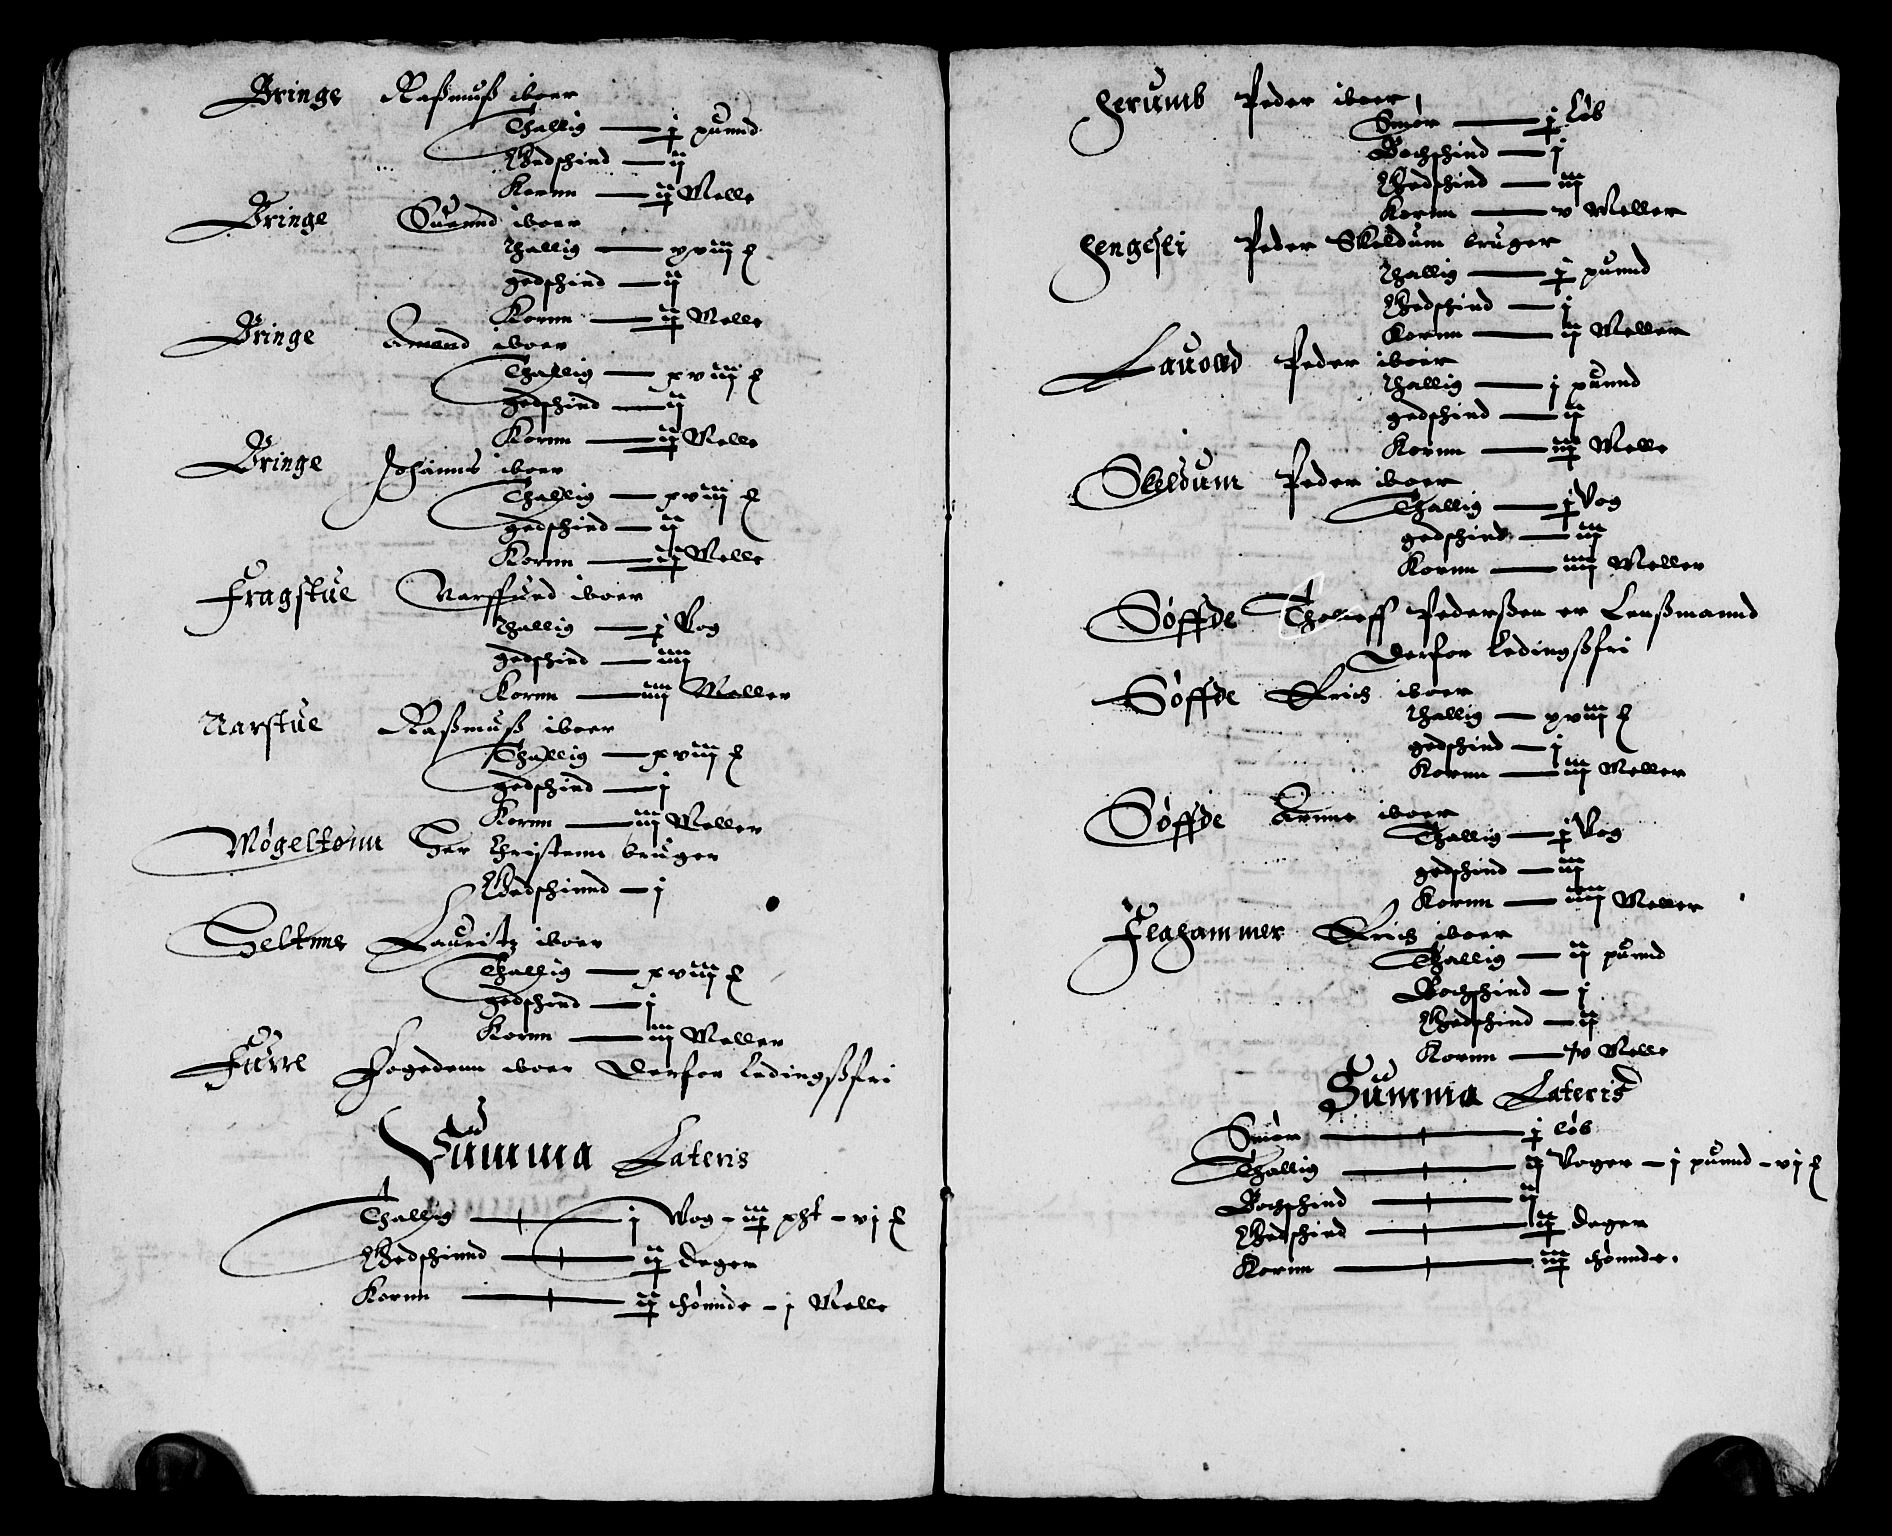 Bringe Raßmuß iboer
Thallig — j punnd
Gedschind — ij
Kornn — ij Melle
Bringe Suennd iboer
Thallig — xviij
gedschind — ij
Kornn — ij Melle
Bringe Amund iboer
Thallig — xviij
gedschind — ij
Kornn — ij Melle
Bringe Johanns iboer
Thallig — xviij
gedschind — ij
Kornn — ij Melle
Fragstue iboer
Thallig — j Vog
gedschind — iiij
Kornn — iiij Meller
Narstue Raßmuß iboer
Thallig — xviij
gedschind — j
Kornn — iij Meller
Møgeltonn Her Christenn bruger
Gedschinnd — j
Heltnne Lauritz iboer
Thallig — xviij
gedschind — j
Kornn — iij Meller
Furre Fogedenn iboer Derfor ledingßfri
Summa Lateris
Thallig — j Vog – iij pht – vj
Gedschinnd — ij deger
Kornn — ij thønnde – j Melle
Herumb Peder iboer
Smør — j Løb
Bochschind — j
Gedschind — iij
Kornn — v Meller
Hengesli Peder Skeldum bruger
Thallig — j punnd
Gedschind — j
Kornn — ij Meller
Lauold Peder iboer
Thallig — j punnd
gedschind — ij
Kornn — iij Melle
Skeldum Peder iboer
Thallig — j Vog
gedschind — iij
Kornn — iiij Meller
Søffde Tholleff Pederßen er Lenßmannd
Derfor ledingßfri
Søffde Erich iboer
Thallig — xviij
gedschind — j
Kornn — iij Meller
Søffde Arnne iboer
Thallig — j Vog
gedschind — iij
Kornn — iiij Meller
Flahammer Erich iboer
Thallig — ij punnd
Bochschind — j
Gedschind — ij
Kornn — v Melle
Summa Lateris
Smør — j løb
Thallig — ij Voger – j punnd – vj
Bochschind — ij
Gedschind — ij deger
Kornn — iij thønnde.